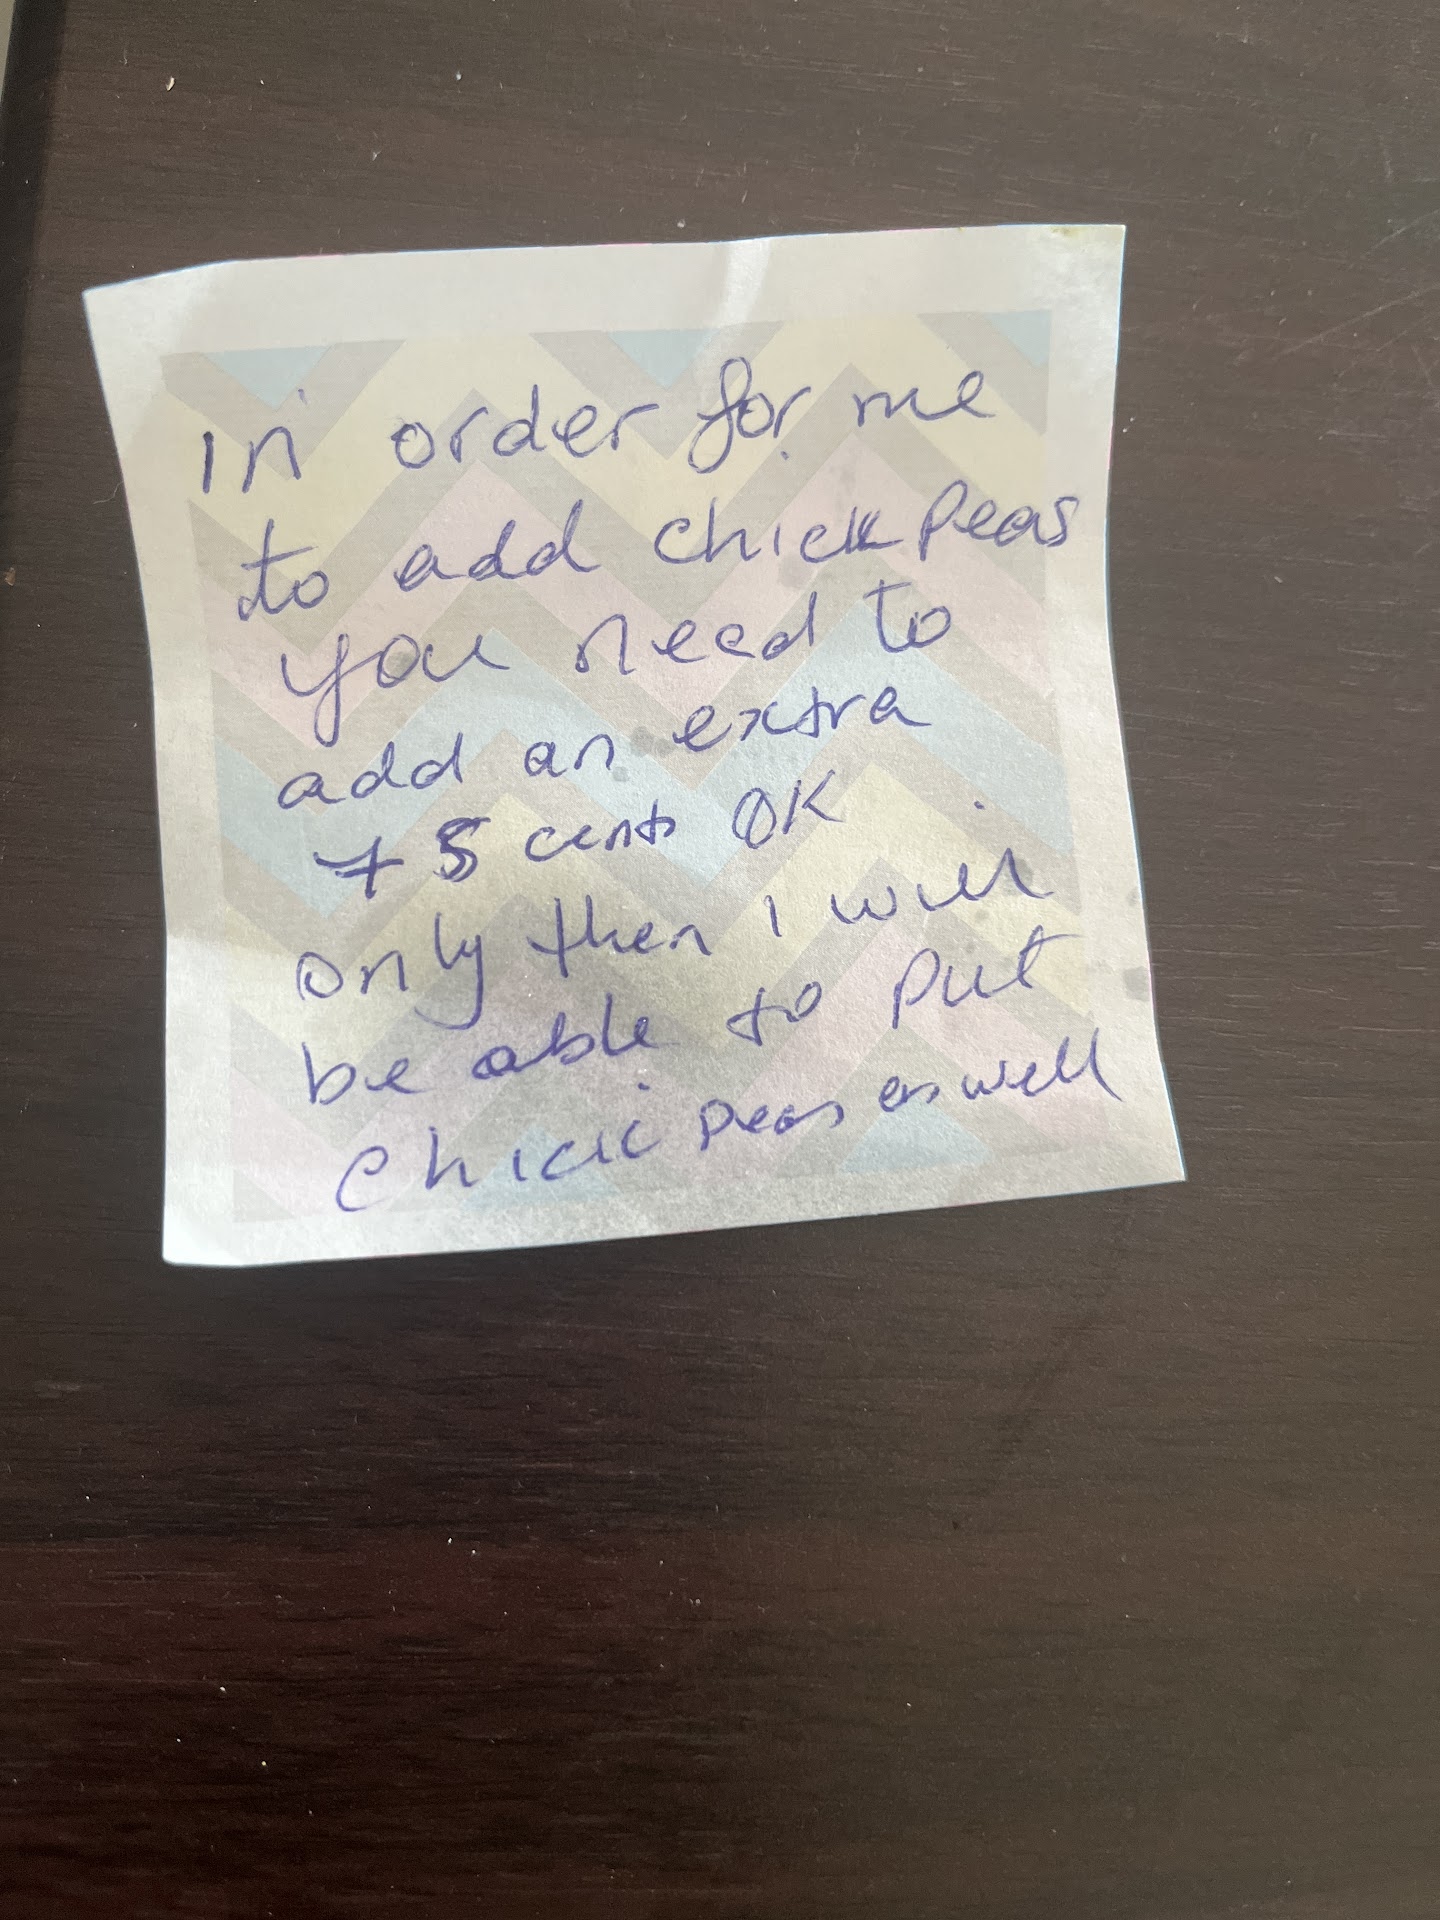 In order for me
to add chick peas
you need to
add an extra
75 cents OK
only then I will
be able to put
chick peas as well